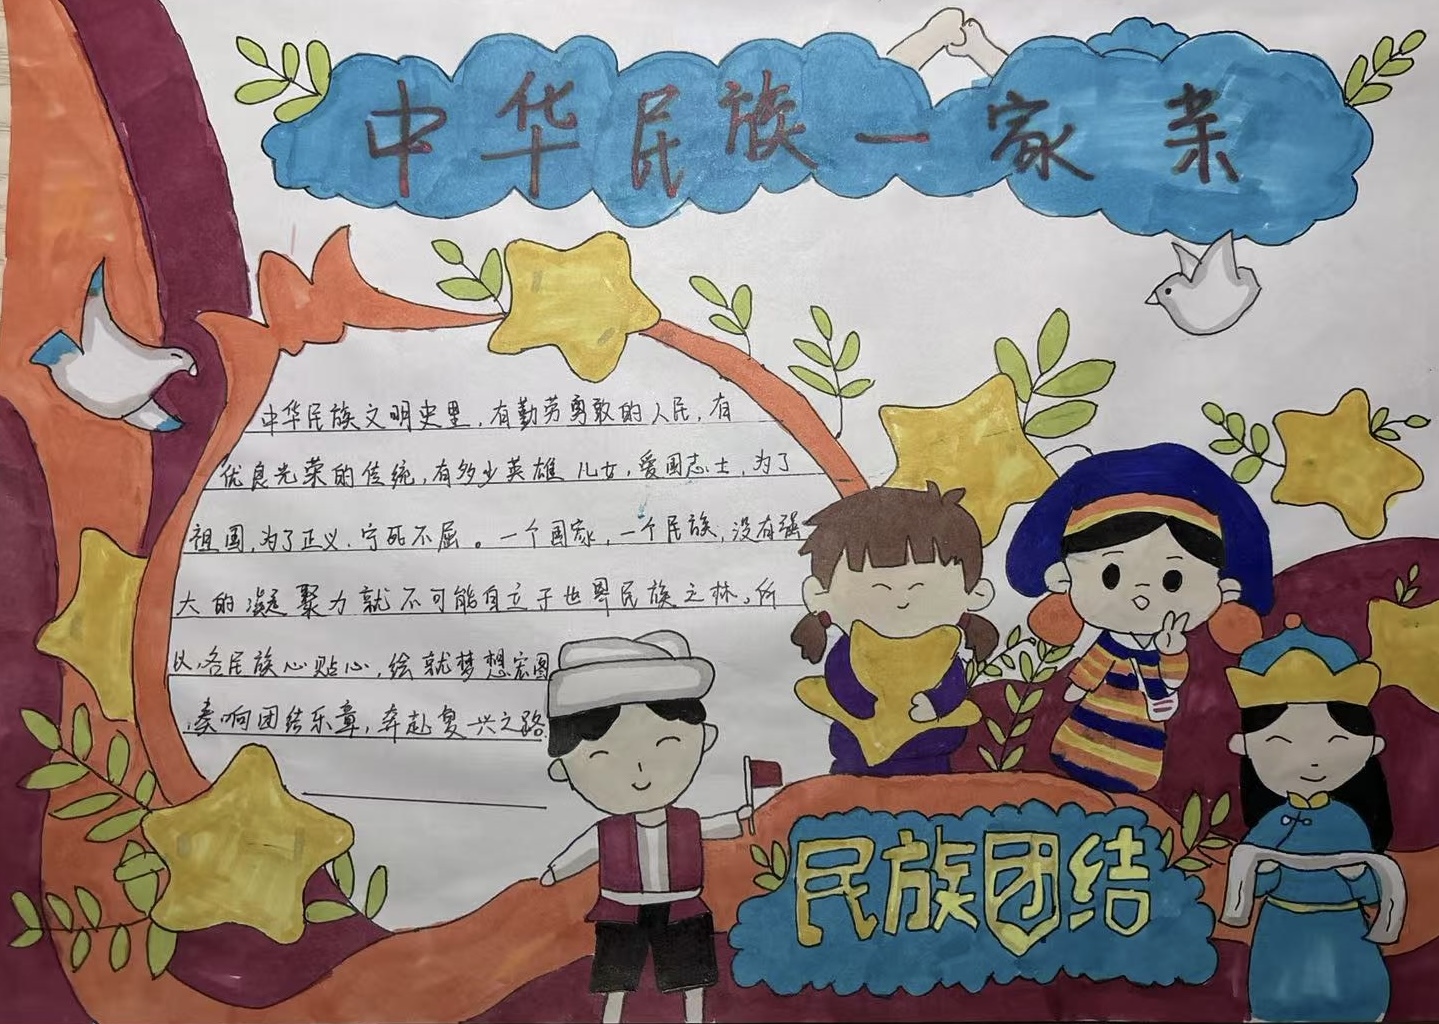 中华民族一家亲
中华民族文明史里,有勤劳勇敢的人民,有
优良光荣的传统,有多少英雄儿女,爱国志士,为了
祖国,为了正义,宁死不屈。一个国家,一个民族,没有强
大的凝聚力就不可能自立于世界民族之林。所
以,各民族心贴心,绘就梦想宏图
,奏响团结乐章,奔赴复兴之路
民族团结